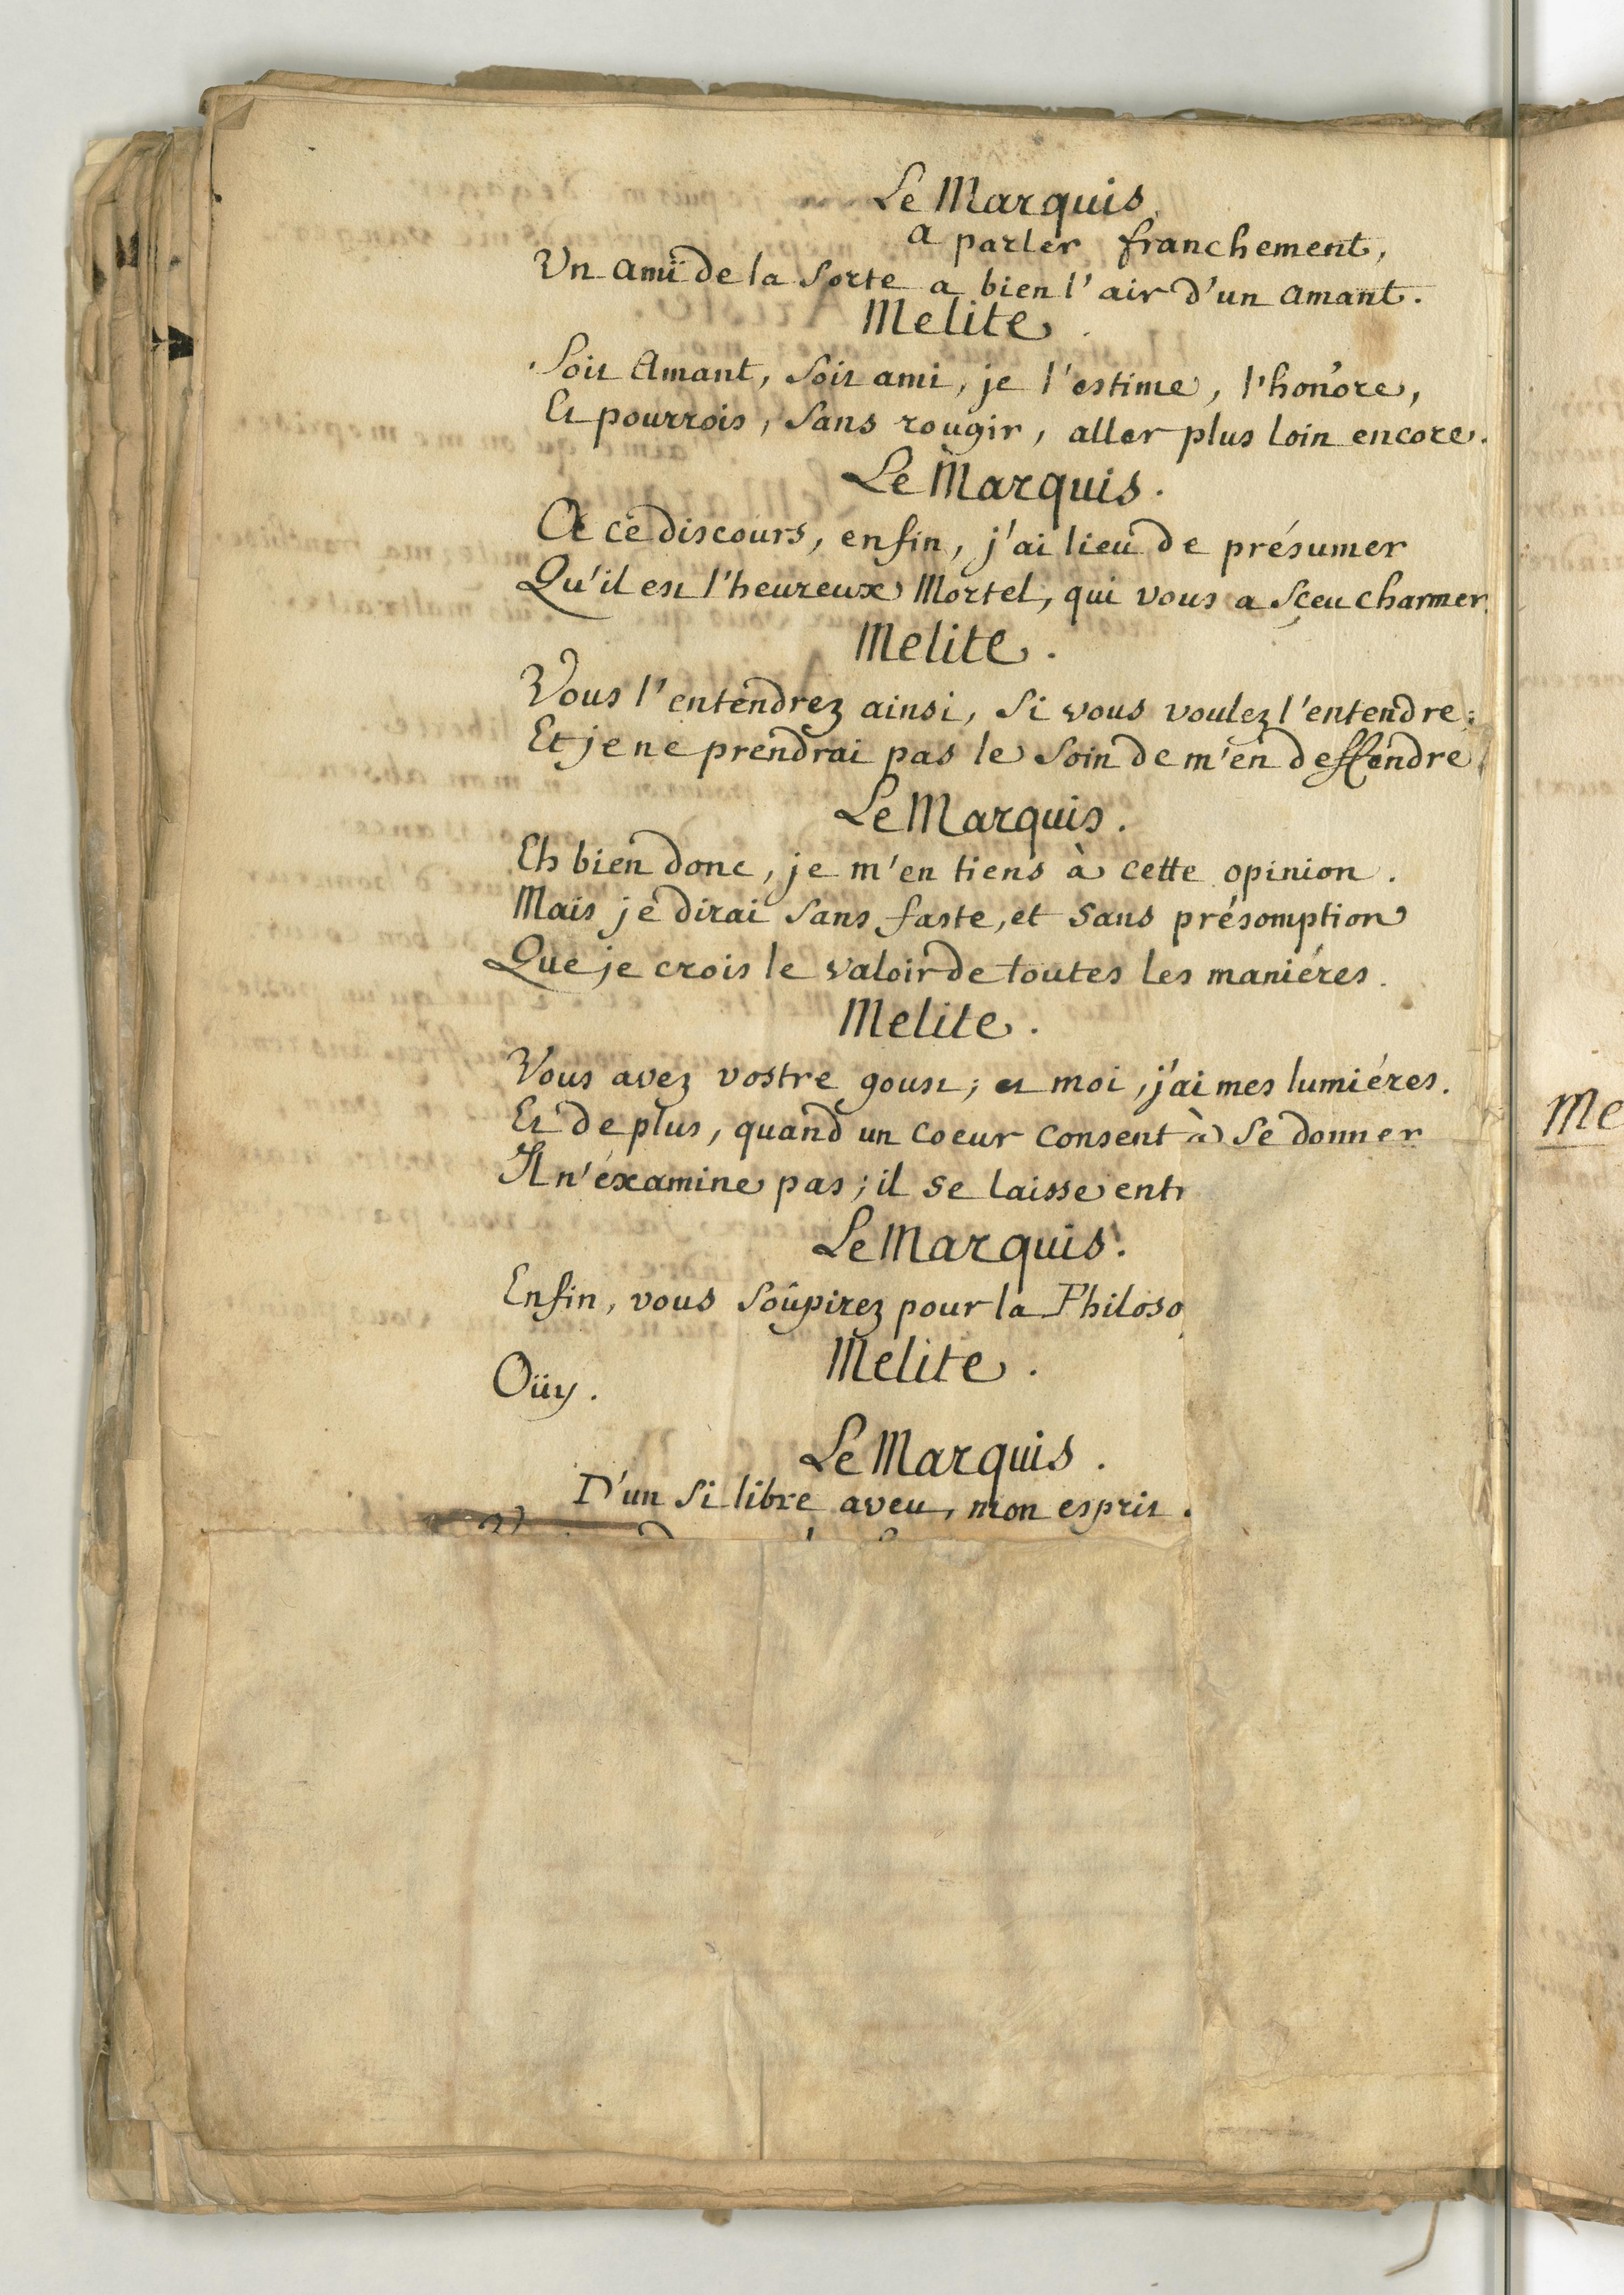 Le Marquis.
a parler franchement,
Un ami de la sorte a bien l'air d'un amant.
Melite.
Soit Amant, soit ami, je l'estime, l'honore,
Et pourrois, sans rougir, aller plus loin encore.
Le Marquis.
A ce discours, enfin, j'ai lieu de présumer
Qu'il est l'heureux Mortel, qui vous a sçeu charmer.
Melite.
Vous l'entendrez ainsi, si vous voulez l'entendre;
Et je ne prendrai pas le soin de m'en deffendre
Le Marquis.
Eh bien donc, je m'en tiens à cette opinion.
Mais je dirai sans faste, et sans présomption
Que je crois le valoir de toutes les maniéres.
Melite.
Vous avez vostre goust; et moi, j'ai mes lumiéres.
Et de plus, quand un coeur consent à se donner
Il n'éxamine pas; il se laisse entr
Le Marquis.
Enfin, vous soûpirez pour la Philoso
Melite.
Oüy.
Le Marquis.
D'un si libre aveu, mon esprit
Me